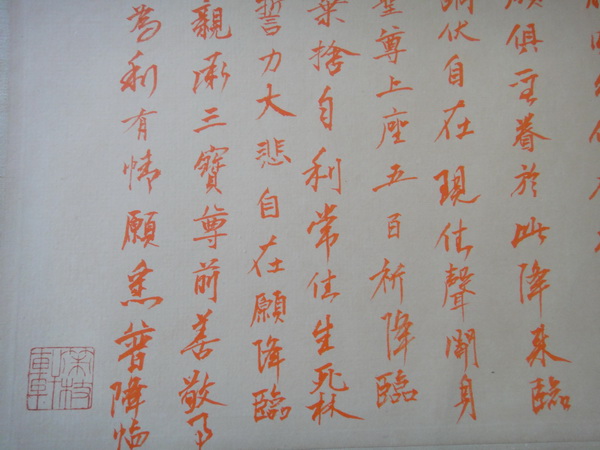 俱於此降來臨
伏自在現住聲聞身
聖尊上座五百祈降臨
棄捨自利常住生死林
誓力大悲自在願降臨
親承三寶尊前善敬事
為利有情願悉普降臨